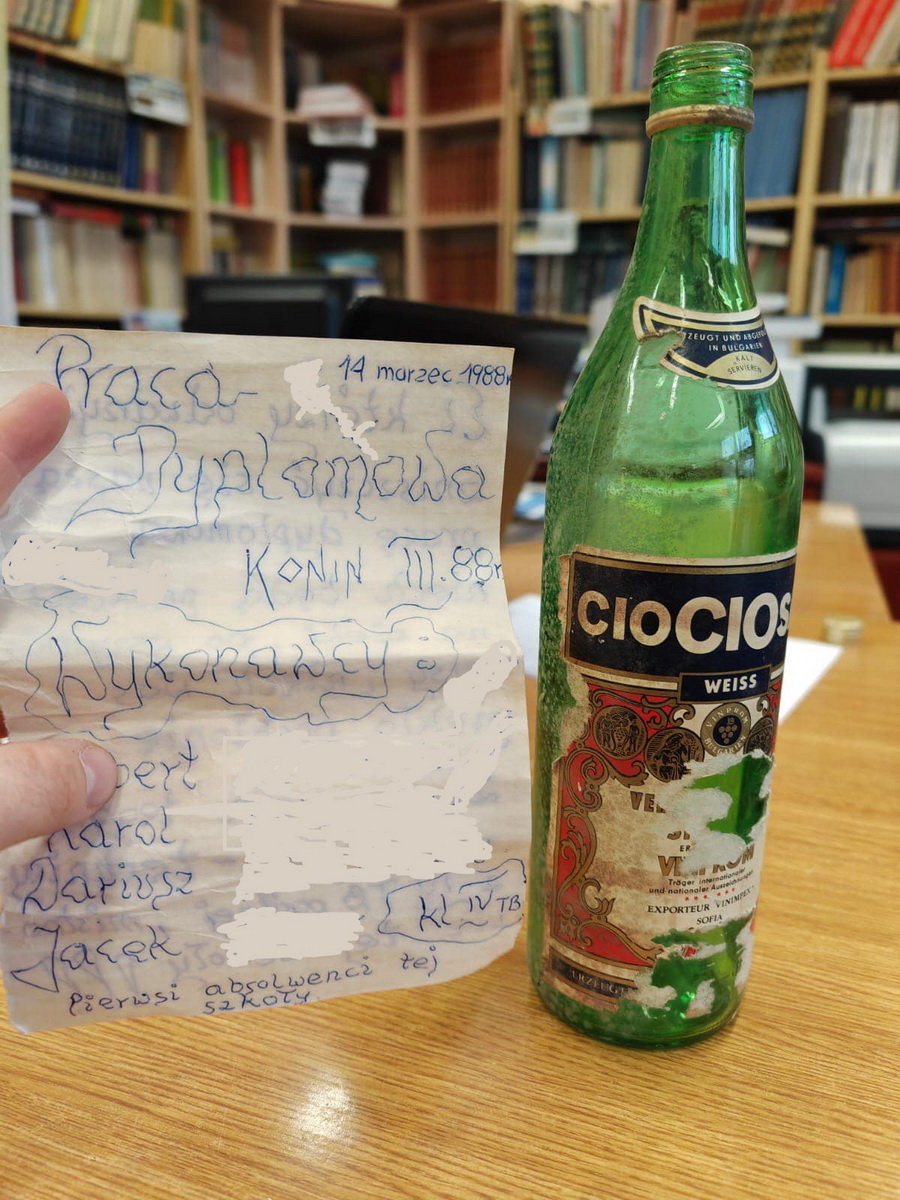 14 marzec 1988r
Praca
Dyplomowa
KONIN III.88r
Wykonawcy:
Karol
Dariusz
Jacek
kl IV TB
Pierwsi absolwenci tej
szkoły
IN BULGARIEN
KALT
SERVIEREN
CIOCIOS
WEISS
Träger internationaler
und nationaler Auszeichnungen
EXPORTEUR VINIMPEX
SOFIA